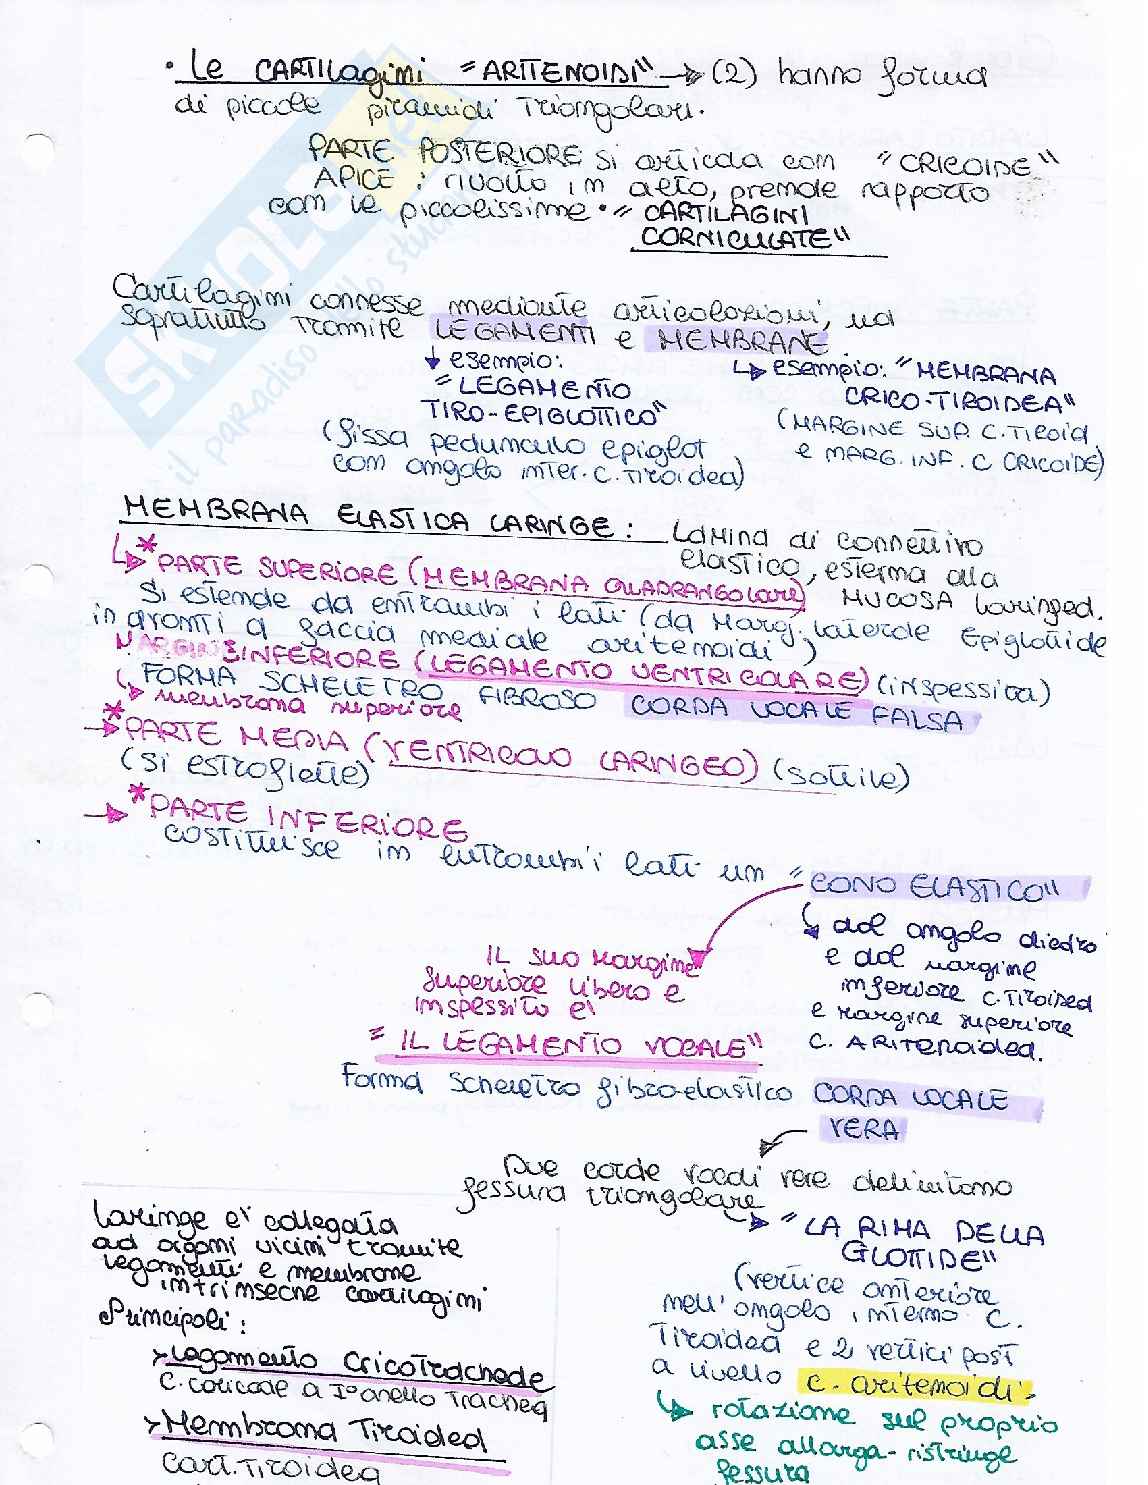 • Le CARTILagini "ARITENOIDI" → (2) hanno forma
di piccole piramidi Triangolari.
PARTE POSTERIORE si articola con "CRICOIDE"
APICE: rivolto in alto, prende rapporto
con le piccolissime • "CARTILAGINI
CORNICULATE"
Cartilagini connesse mediante articolazioni, ma
sopratutto Tramite LEGAMENTI e MEMBRANE.
↓ esempio:
"LEGAMENTO
TIRO-EPIGLOTTICO"
(fissa peduncolo epiglot
con angolo inter. C. Tiroidea)
↳ esempio: "MEMBRANA
CRICO-TIROIDEA"
(MARGINE SUP. C. TIROID.
e MARG. INF. C CRICOIDE)
MEMBRANA ELASTICA LARINGE: Lamina di connettivo
elastico, esterna alla
MUCOSA laringed.
↳ * PARTE SUPERIORE (MEMBRANA QUADRANGOLare)
Si estende da entrambi i lati (da Marg. laterale Epiglottide
in avanti a faccia mediale aritenoidi)
MARGINE INFERIORE (LEGAMENTO VENTRICOLARE) (inspessita)
↳ FORMA SCHELETRO FIBROSO CORDA VOCALE FALSA
↳ membrana superiore
→ * PARTE MEDIA (VENTRICOLO LARINGEO) (sottile)
(si estroflette)
→ * PARTE INFERIORE
COSTITUISCE in entrambi lati un "CONO ELASTICO"
↳ dal angolo diedro
e dal margine
inferiore C. Tiroided
e Margine superiore
C. ARITENoidea.
IL suo Margine
Superiore libero e
inspessito e'
"IL LEGAMENTO VOCALE"
Forma scheletro fibro-elastico CORDA VOCALE
VERA
Due corde vocali vere delimitano
fessura triangolare
↳ "LA RIMA DELLA
GLOTTIDE"
(vertice anteriore
nell'angolo interno C.
Tiroidea e 2 vertici post
a livello C. aritenoidi.
↳ rotazione sul proprio
asse allarga-ristringe
fessura
Laringe e' collegata
ad organi vicini tramite
legamenti e membrane
intrinseche cartilagini
Principali:
> Legamento CricoTracheale
C. coricode a I° anello Trachea
> Membrana Tiroided
Cart. Tiroidea
SKUOLA.net
il paradiso dello studente